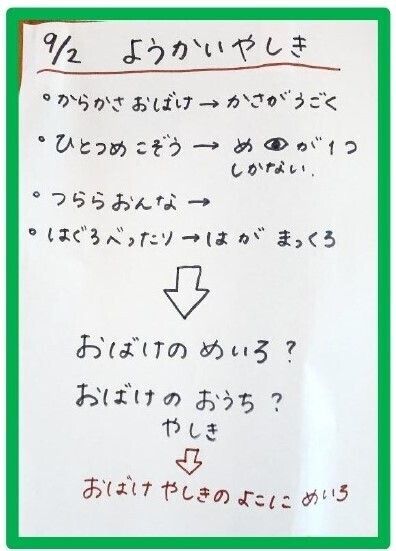 9/2 ようかいやしき
• からかさおばけ → かさがうごく
• ひとつめこぞう → めが1つ
しかない.
• つららおんな →
• はぐろべったり → はがまっくろ
おばけのめいろ？
おばけのおうち？
やしき
おばけやしきのよこにめいろ